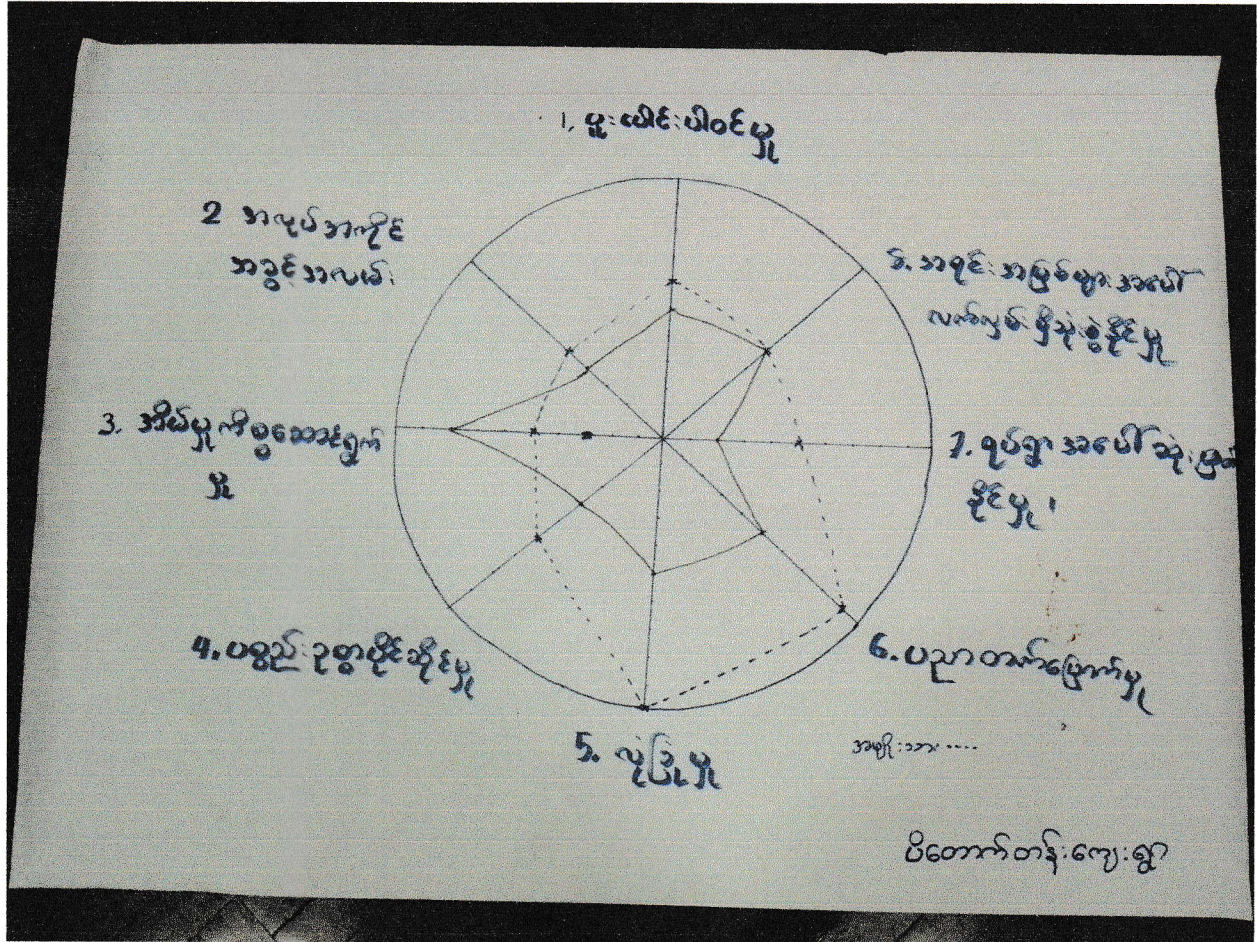 1, ပူးပေါင်းပါဝင်မှု
2 အလုပ်အကိုင်
အခွင့်အလမ်း
3. အိမ်မှုကိစ္စဆောင်ရွက်
မှု
4. ပစ္စည်းဥစ္စာပိုင်ဆိုင်မှု
5. လုံခြုံမှု
6. ပညာတတ်မြောက်မှု
7. ရပ်ရွာအပေါ်ဆုံးဖြတ်
နိုင်မှု ၊
8. အရင်းအမြစ်များအပေါ်
လက်လှမ်းမှီသုံးစွဲနိုင်မှု
အမျိုးသား ----
ပိတောက်တန်းကျေးရွာ